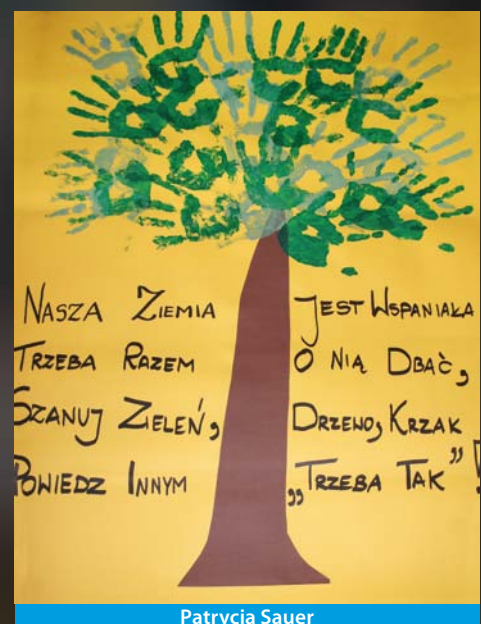 NASZA ZIEMIA JEST WSPANIAŁA
TRZEBA RAZEM O NIĄ DBAĆ,
SZANUJ ZIELEŃ, DRZEWO, KRZAK
POWIEDZ INNYM „TRZEBA TAK” !
Patrycja Sauer